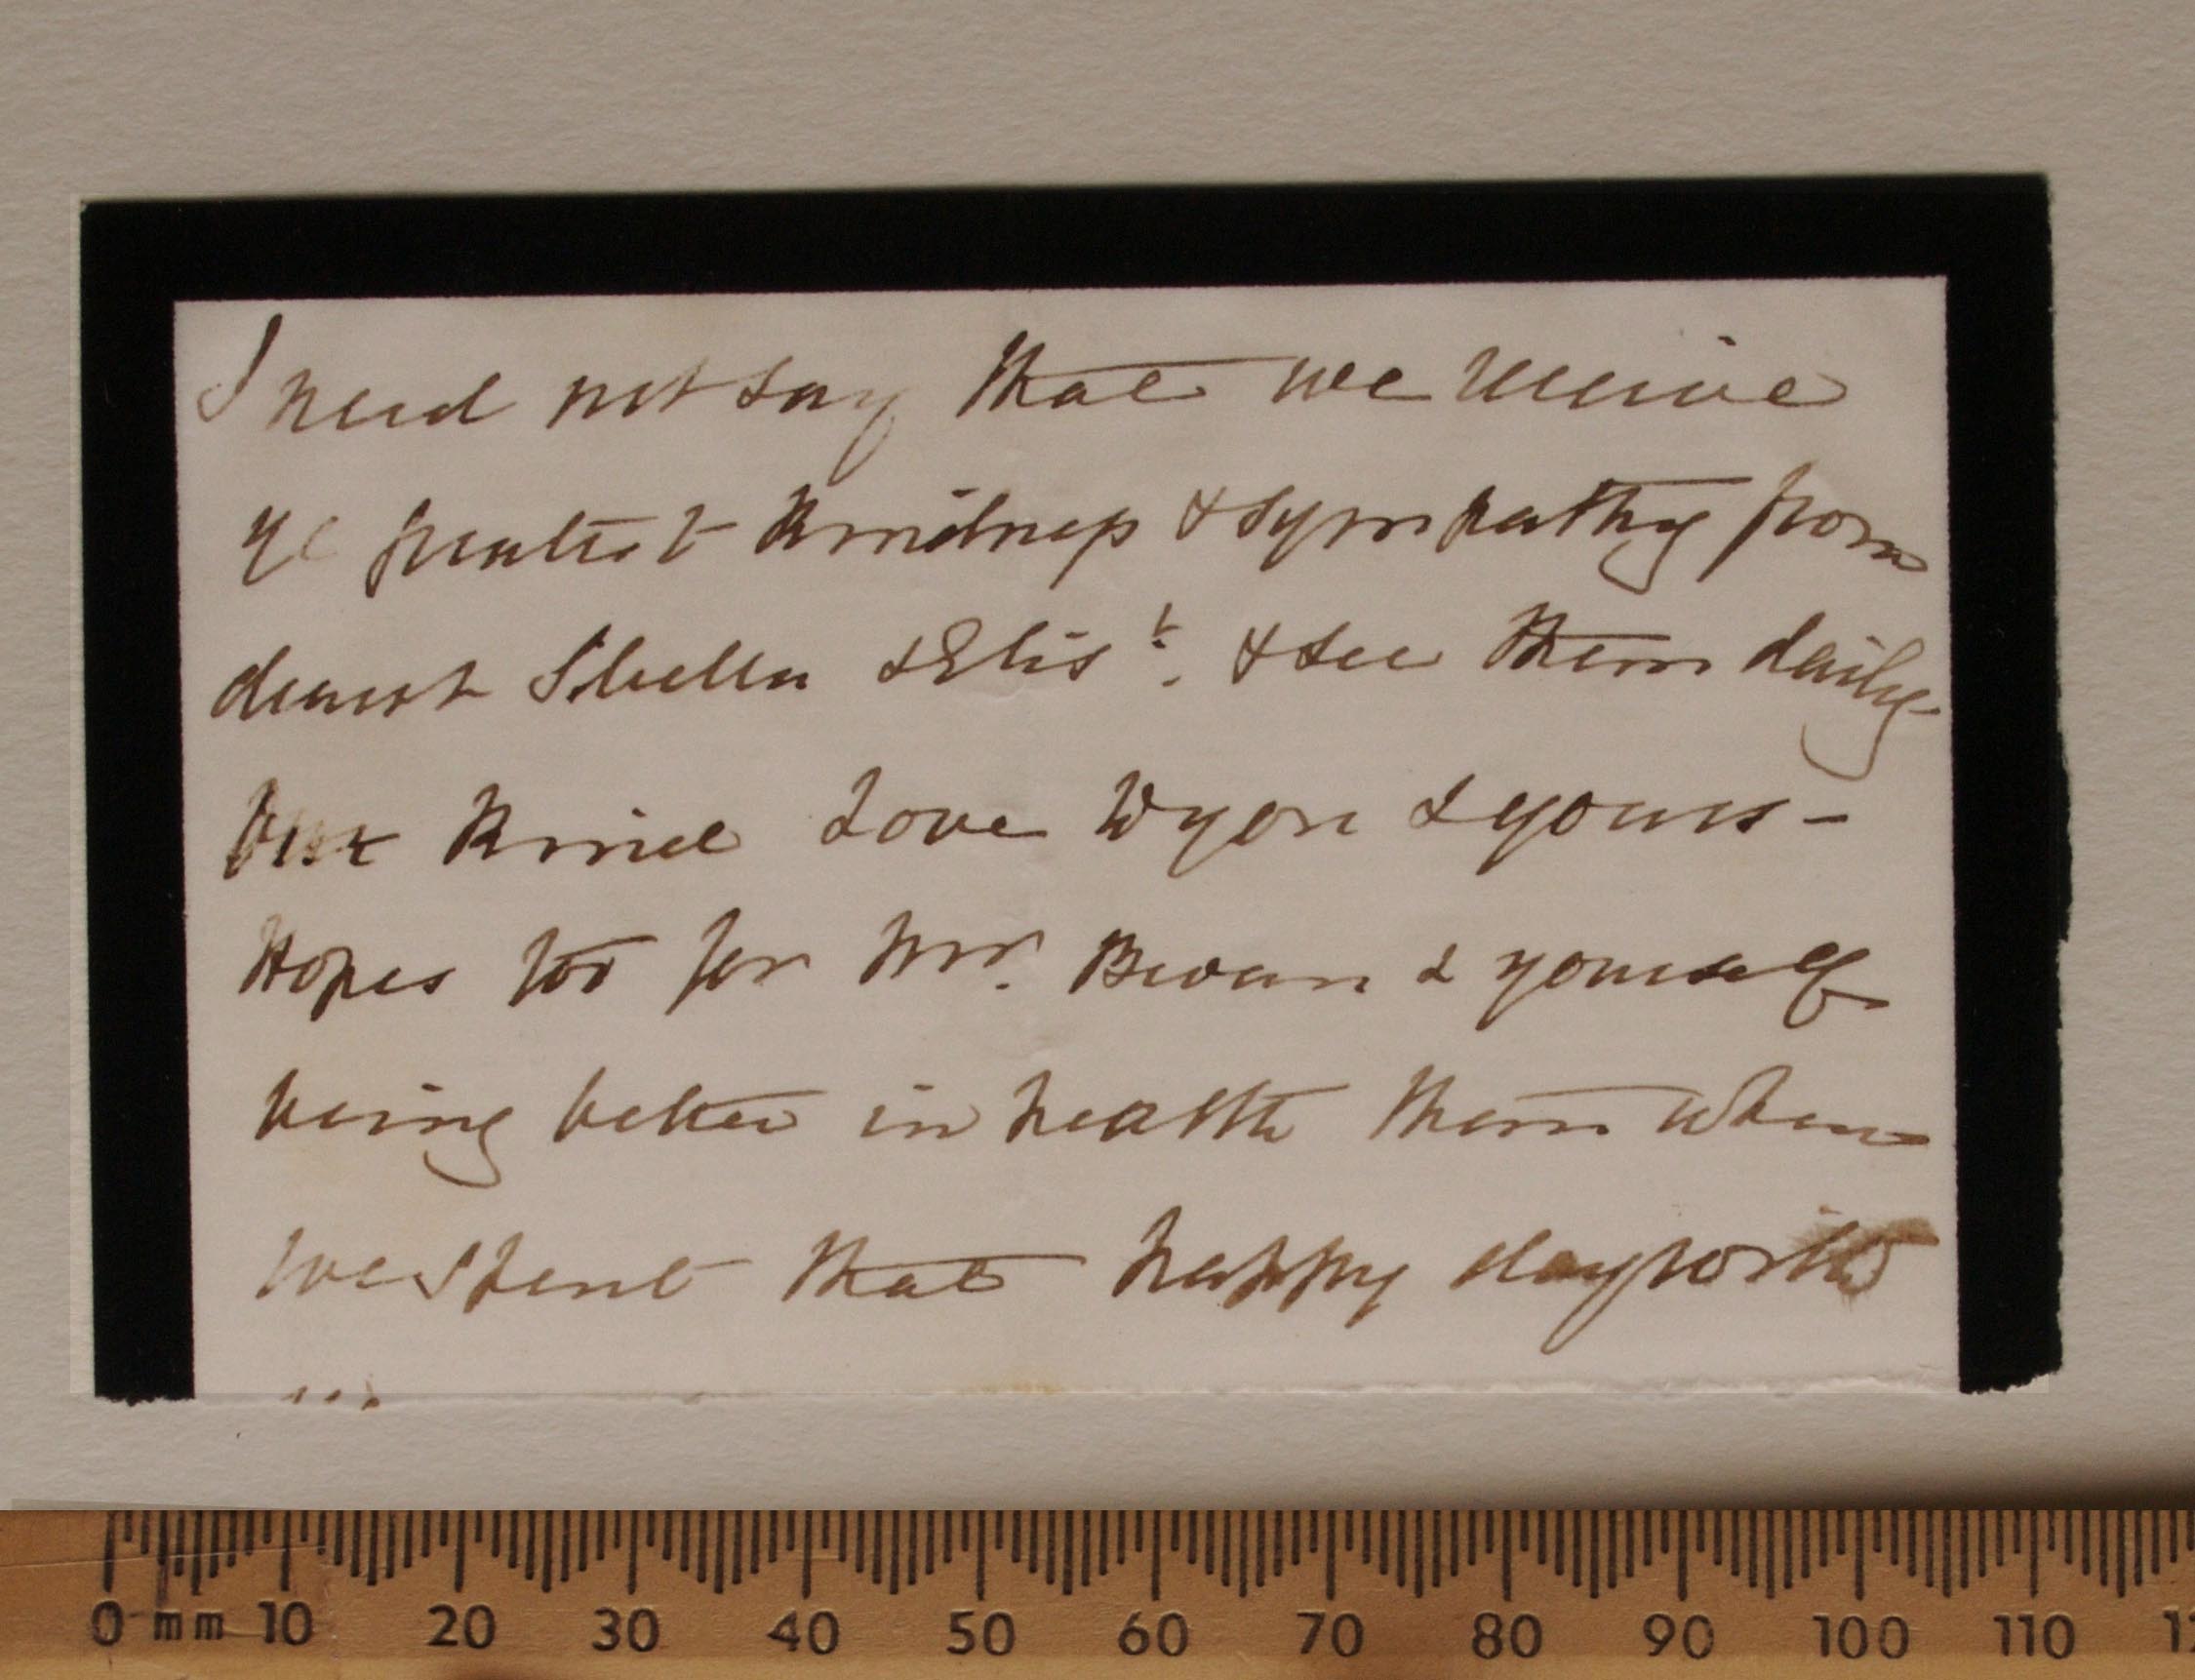 I need not say that we receive
ye greatest kindness & sympathy from
dearest Sibella & Elis^t. & see them daily -
Our Kind Love to you & yours -
Hopes too for Mr. Bevan & yourself
being better in health than when
we spent that happy day with
0 mm 10 20 30 40 50 60 70 80 90 100 110